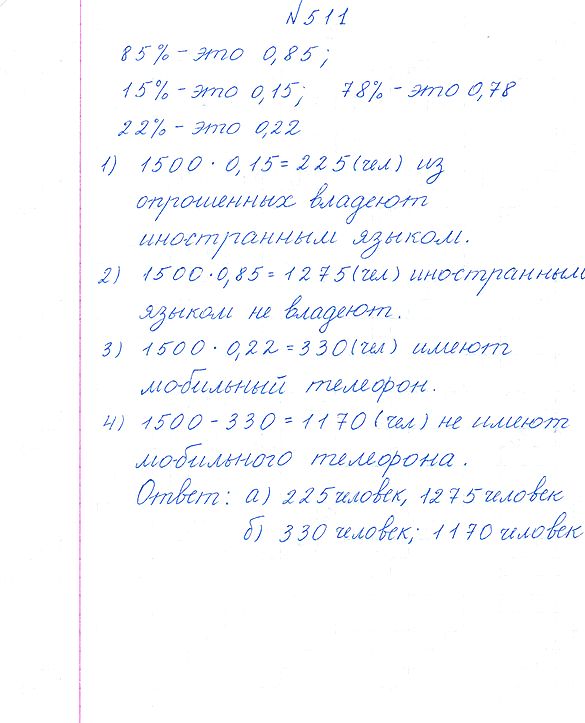 №511
85% - это 0,85;
15% - это 0,15; 78% - это 0,78
22% - это 0,22
1) 1500 · 0,15 = 225 (чел) из
опрошенных владеют
иностранным языком.
2) 1500 · 0,85 = 1275 (чел) иностранным
языком не владеют.
3) 1500 · 0,22 = 330 (чел) имеют
мобильный телефон.
4) 1500 - 330 = 1170 (чел) не имеют
мобильного телефона.
Ответ: а) 225 человек, 1275 человек
б) 330 человек; 1170 человек